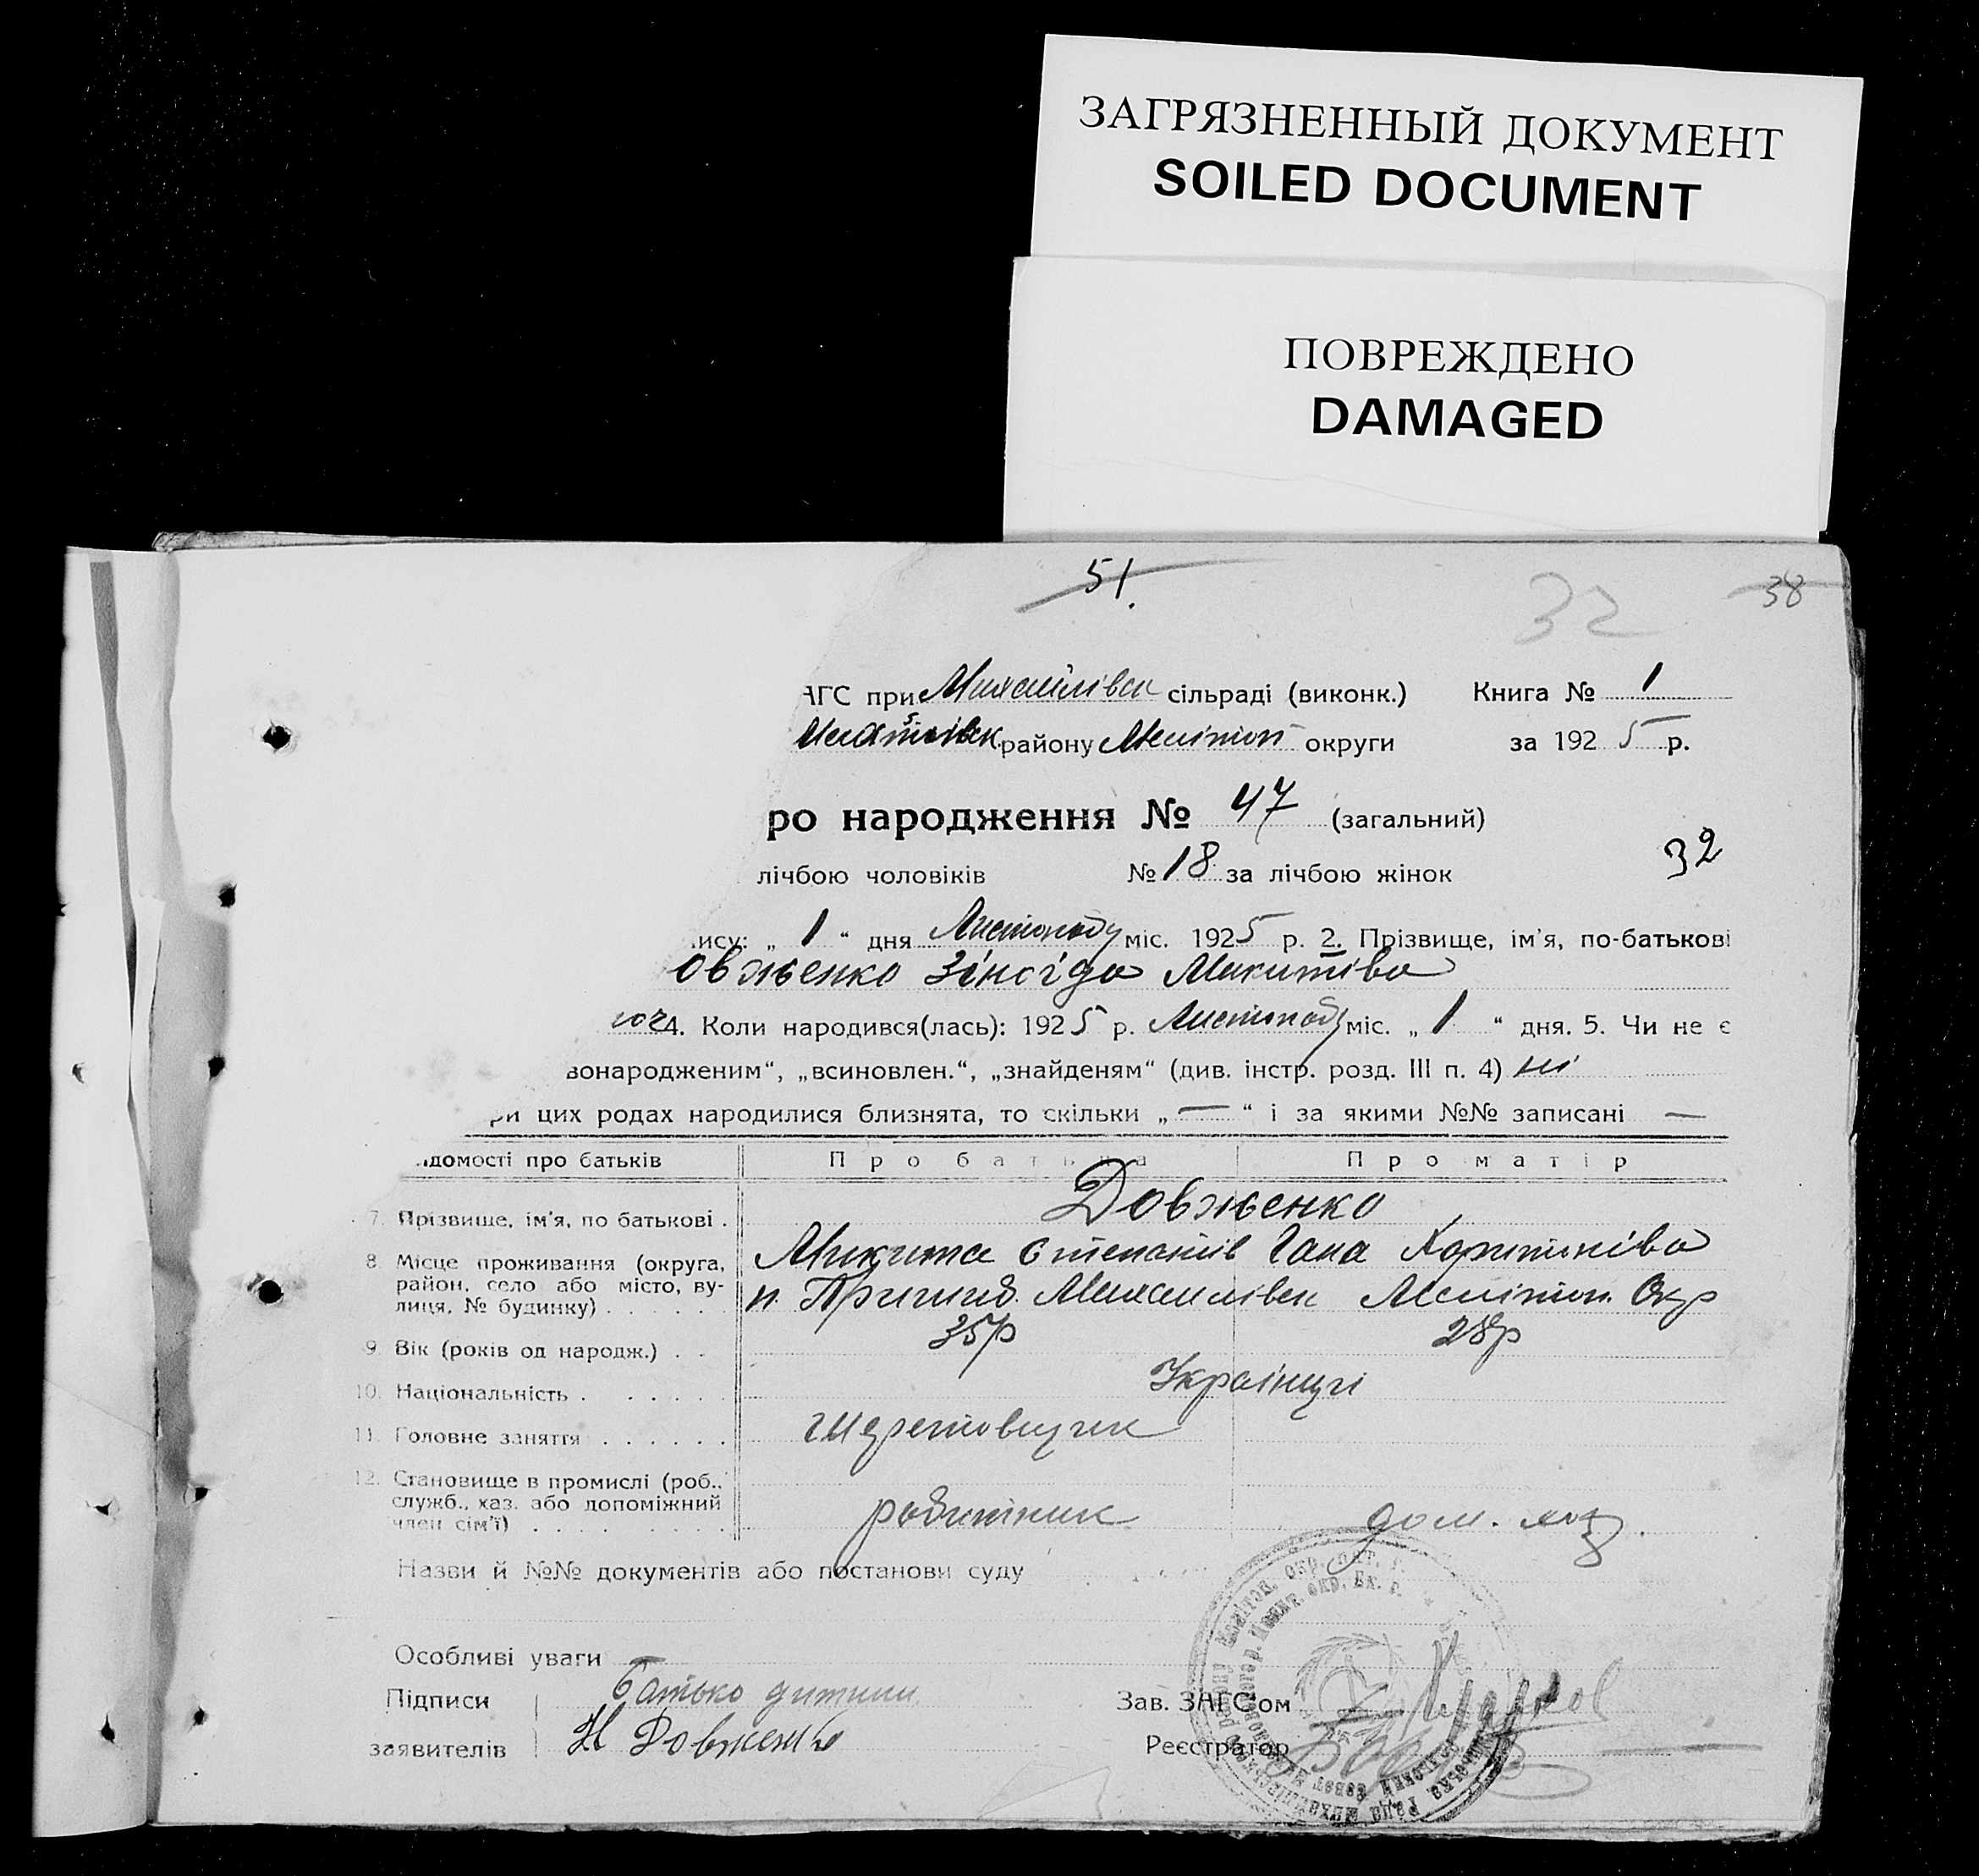 ЗАГРЯЗНЕННЫЙ ДОКУМЕНТ
SOILED DOCUMENT
ПОВРЕЖДЕНО
DAMAGED
51.
32
38
АГС при Михайлівск сільраді (виконк.) Книга № 1
району Мелітоп округи за 1925 р.
ро народження № 47 (загальний)
лічбою чоловіків № 18 за лічбою жінок
32
ису: „ 1 “ дня Листопаду міс. 1925 р. 2. Прізвище, ім'я, по-батькові
овженко Зінаіда Микитіва
4. Коли народився(лась): 1925 р. Листопаду міс. „ 1 “ дня. 5. Чи не є
вонародженим“, „всиновлен.“, „знайденям“ (див. інстр. розд. III п. 4) ні
ри цих родах народилися близнята, то скільки „ — “ і за якими №№ записані —
ідомості про батьків Про батька Про матір
Довженко
7. Прізвище, ім'я, по батькові . Микита Степанів Гана Харитинівa
8. Місце проживання (округа,
район, село або місто, ву-
лиця, № будинку) . . . . . п. Пришиб Михайлівск Мелітоп. Окр
9. Вік (років од народж.) . . 35р 28р
10. Національність . . . . . . Украінці
11. Головне заняття . . . . . .
12. Становище в промислі (роб..
служб., хаз. або допоміжний
член сім'ї) . . . . . . . робітник дом. хоз.
Назви й №№ документів або постанови суду
Особливі уваги
Підписи Батько дитини
заявителів Н Довженко
Зав. ЗАГС'ом
Реєстратор